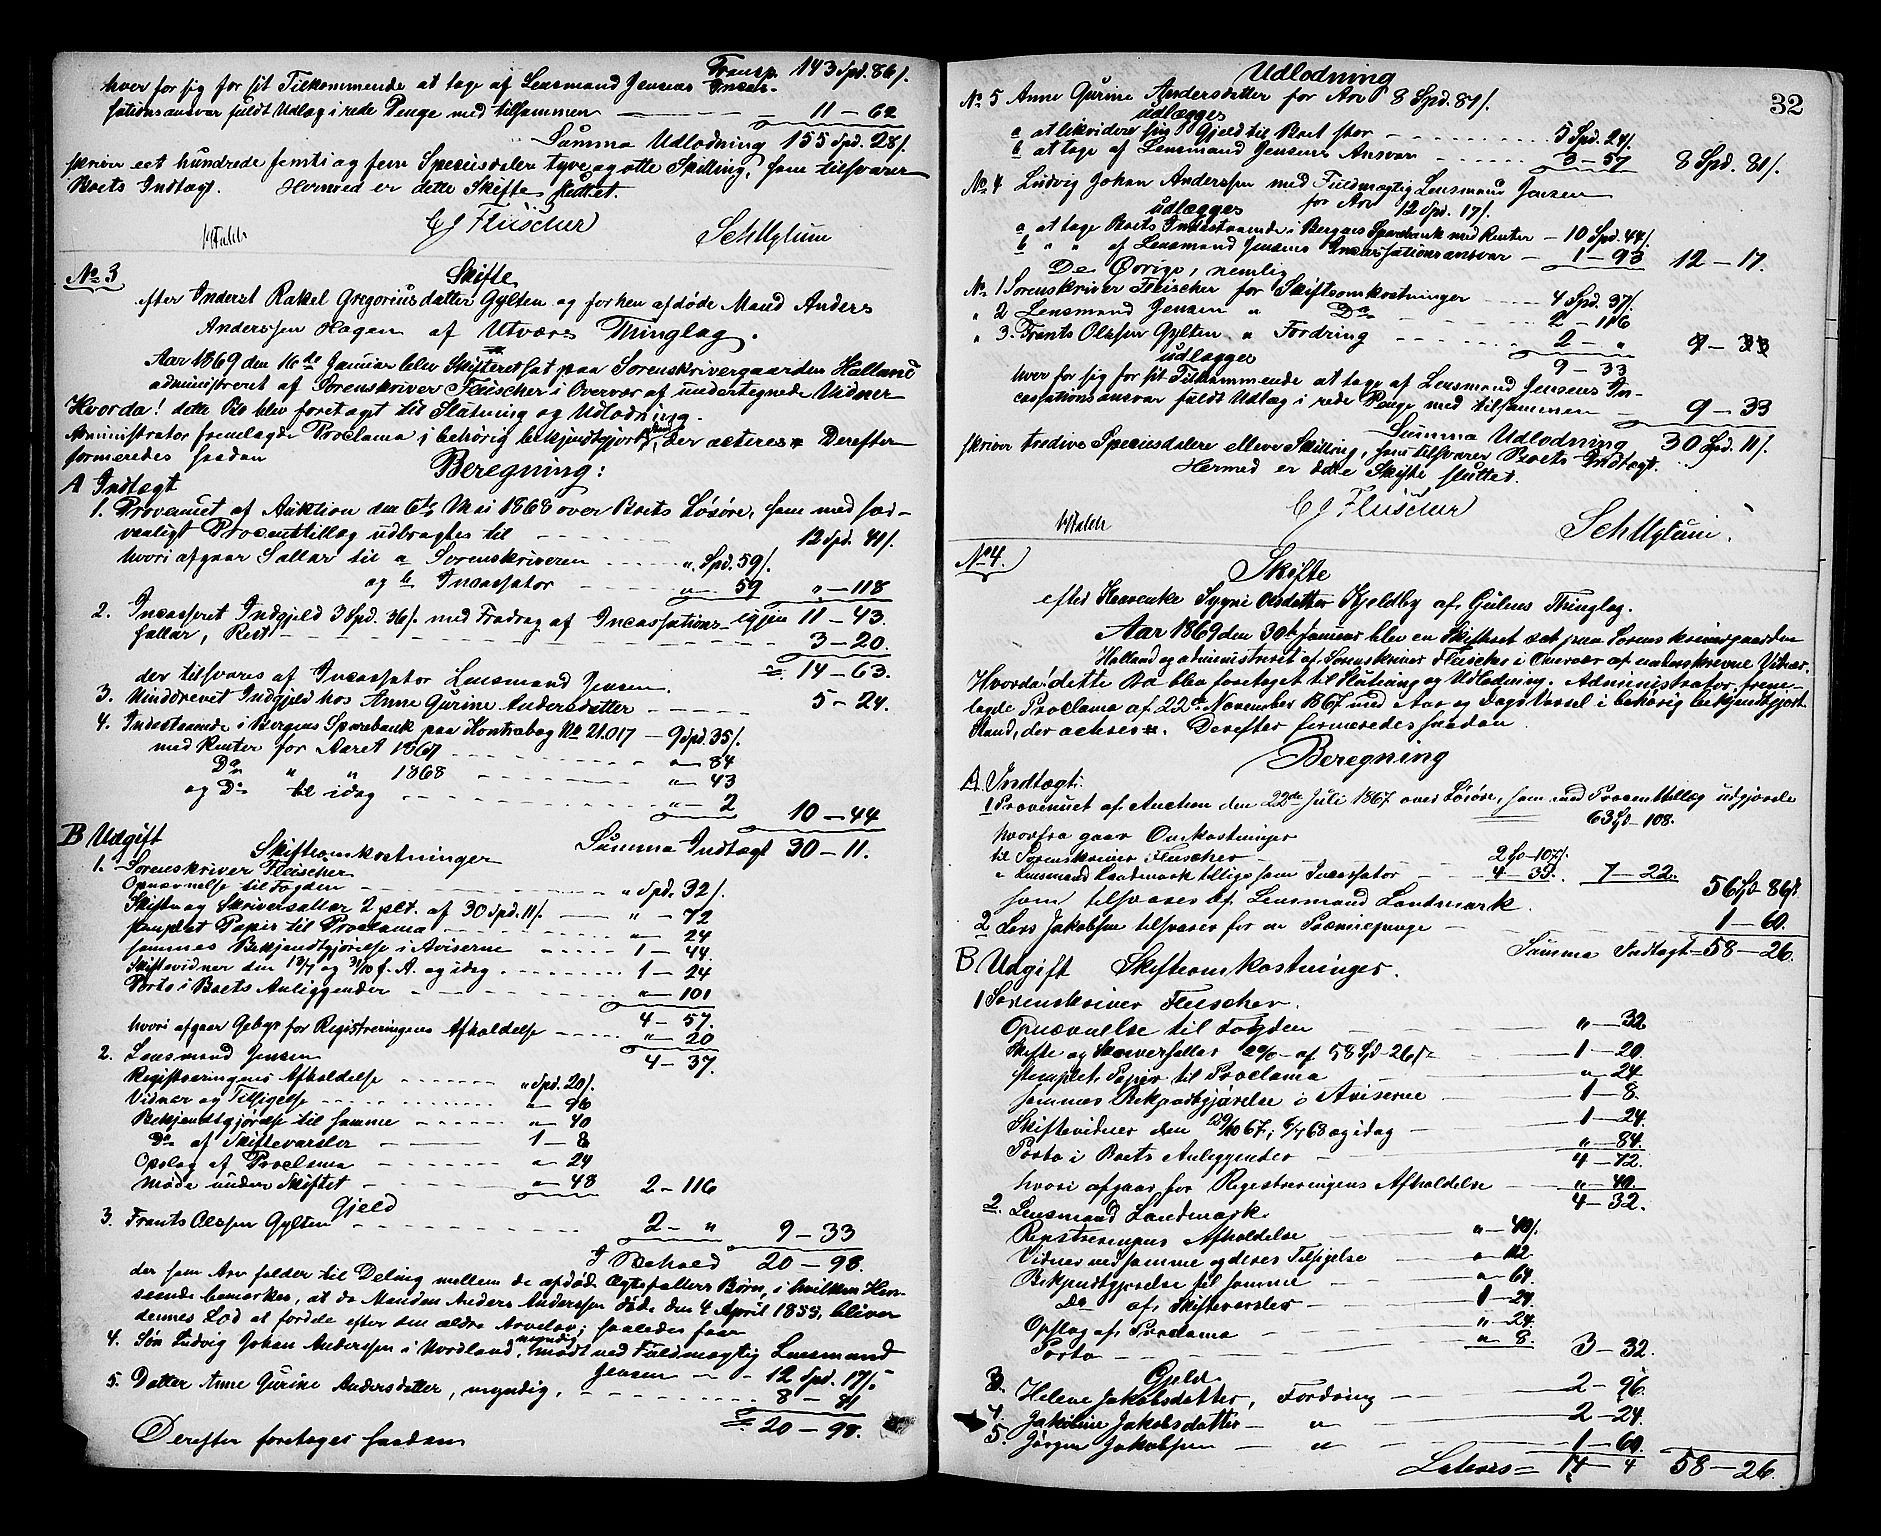 Transp. 143 Spd. 86/.
hver for sig for sit Tilkommende at tage af Lensmand Jensens Incas-
sationsansvar fuldt Udlæg i rede Penge med tilsammen 11 – 62
Summa Udlodning 155 Spd. 28/.
skriver eet hundrede femti og fem Speciesdaler tyve og otte Skilling, som tilsvarer
Boets Indtægt. Hermed er dette Skifte sluttet.
CJ Fleischer
No 3
Skifte
efter Inderst Rakel Gregoriusdatter Gylten og forhen afdøde Mand Anders
Anderssen Hagen af Utværs Thinglag.
Aar 1869 den 16de Januar blev Skifteret sat paa Sorenskrivergaarden Halland
administreret af Sorenskriver Fleischer i Overvær af undertegnede Vidner
Hvorda! dette Bo blev foretaget til Slutning og Udlodning.
Administrator fremlagde Proclama i behørig bekjendtgjort Stand, der acteres. Derefter
formeredes saadan
Beregning:
A Indtægt
1. Provenuet af Auktion den 6te Mai 1868 over Boets Løsøre, som med sæd-
vanligt Procenttillæg udbragtes til 12 Spd. 41/.
hvori afgaar Sallar til a Sorenskriveren " Spd. 59/.
og b Incassator " – 59 " – 118
igjen 11 – 43.
2. Incasseret Indgjeld 3 Spd. 36/. med Fradrag af Incassations-
sallar, Rest 3 – 20.
= 14 – 63.
der tilsvares af Incassator Lensmand Jensen.
3. Uinddrevet Indgjeld hos Anne Gurine Andersdatter 5 – 24.
4. Indestaaende i Bergens Sparebank paa Kontrabog No 21.017 – 9 Spd. 35/.
med Renter for Aaret 1867 " – 84
Do " " 1868 " – 43
og Do til idag " – 2 10 – 44
Summa Indtægt 30 – 11.
B Udgift
Skifteomkostninger
1. Sorenskriver Fleischer
Opnævnelse til Fogden " Spd. 32/.
Skifte og Skriversallar 2 pCt. af 30 Spd. 11/. " – 72
stemplet Papir til Proclama " – 24
sammes Bekjendtgjørelse i Aviserne 1 – 44
Skiftevidner den 13/7 og 31/10 f. A. og idag 1 – 24
Porto i Boets Anliggender " – 101
4 – 57.
hvori afgaar Gebyr for Registreringens Afholdelse " – 20
4 – 37.
2. Lensmand Jensen
Registreringens Afholdelse " Spd. 20/.
Vidner og Tilsigelse " – 96
Bekjendtgjørelse til samme " – 40
Do af Skiftevarsler 1 – 8
Opslag af Proclama " – 24
Møde under Skiftet " – 48 2 – 116
Gjeld
3. Frants Olssen Gylten 2 – " 9 – 33
I Behold 20 – 98.
der som Arv falder til Deling mellem de afdøde Ægtefællers Børn, i hvilken Hen-
seende bemærkes, at da Manden Anders Anderssen døde den 4 April 1855, bliver
dennes Lod at fordele efter den ældre Arvelov; saaledes faar
4. Søn Ludvig Johan Anderssen i Nordland, myndig, mødt ved Fuldmægtig Lensmand
Jensen 12 Spd. 17/.
5. Datter Anne Gurine Andersdatter, myndig, 8 – 81
= 20 – 98.
Derefter foretages saadan
32
Udlodning
No 5 Anne Gurine Andersdatter for Arv 8 Spd. 81/.
udlægges
a at likvidere sin Gjeld til Boet stor 5 Spd. 24/.
b at tage af Lensmand Jensens Ansvar 3 – 57 8 Spd. 81/.
No 4 Ludvig Johan Anderssen med Fuldmægtig Lensmand Jensen
for Arv 12 Spd. 17/.
udlægges
a at tage Boets Indestaaende i Bergens Sparebank med Renter – 10 Spd. 44/.
b " " af Lensmand Jensens Incassationsansvar – 1 – 93 12 – 17.
De Øvrige, nemlig
No 1 Sorenskriver Fleischer for Skifteomkostninger 4 Spd. 37/.
" 2 Lensmand Jensen " Do 2 – 116
" 3. Frants Olssen Gylten " Fordring 2 – "
9 – 33
udlægges
hver for sig for sit Tilkommende at tage af Lensmand Jensens In-
cassationsansvar fuldt Udlæg i rede Penge med tilsammen 9 – 33
Summa Udlodning 30 Spd. 11/.
skriver tredive Speciesdaler elleve Skilling, som tilsvarer Boets Indtægt.
Hermed er dette Skifte sluttet.
CJ Fleischer
No 4.
Skifte
efter Huusenke Sygni Olsdatter Kjeldby af Gulens Thinglag.
Aar 1869 den 30te Januar blev en Skifteret sat paa Sorenskrivergaarden
Halland og administreret af Sorenskriver Fleischer i Overvær af underskrevne Vidner.
Hvorda: dette Bo blev foretaget til Slutning og Udlodning. Administrator frem-
lagde Proclama af 22de November 1867 med Aar og Dags Varsel i behørig bekjendtgjort
Stand, der acteres. Derefter formeredes saadan
Beregning
A. Indtægt:
1 Provenuet af Auction den 22de Juli 1867 over Løsøre, som med Procenttillæg udgjorde
63 Spd – 108.
hvorfra gaar Omkostninger
til Sorenskriver Fleischer 2 Spd – 107/.
" Lensmand Landmark tilligesom Incassator 4 – 35. 7 – 22.
56 Spd – 86/.
som tilsvares af Lensmand Landmark.
2 Lars Jakobsen tilsvarer for en Præmiepenge 1 – 60.
Summa Indtægt = 58 – 26.
B Udgift Skifteomkostninger.
1 Sorenskriver Fleischer.
Opnævnelse til Fogden " – 32
Skifte og Skriversallar 2% – af 58 Spd – 26/. 1 – 20.
stemplet Papir til Proclama " – 24
sammes Bekjendtgjørelse i Aviserne 1 – 8.
Skiftevidner den 29/10 67, 6/7 68 og idag 1 – 24.
Porto i Boets Anliggender " – 84.
4 – 72.
hvori afgaar for Registreringens Afholdelse " – 40.
4 – 32.
2. Lensmand Landmark
Registreringens Afholdelse " – 40/.
Vidner ved samme og deres Tilsigelse " – 112
Bekjendtgjørelse til samme " – 64.
Do af Skiftevarsler 1 – 24.
Opslag af Proclama " – 24.
Porto " 8. 3 – 32.
Gjeld
3. Helene Jakobsdatter, Fordring 2 – 96.
4. Jakobine Jakobsdatter " 2 – 24.
5. Jørgen Jakobsen " 1 – 60.
Lateris = 14 – 4 58 – 26.